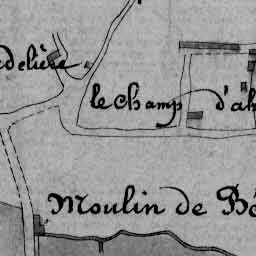 delière
le Champ d'ah
Moulin de Bé